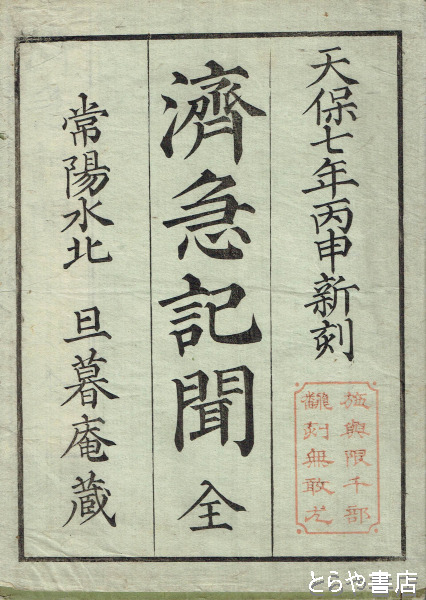 天保七年丙申新刻
施與限千部
飜刻無敢尤
濟急記聞 全
常陽水北 旦暮庵蔵
とらや書店